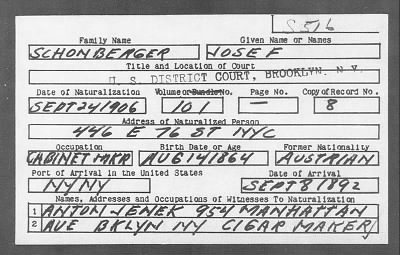 S 516
Family Name Given Name or Names
SCHONBERGER JOSEF
Title and Location of Court
U. S. DISTRICT COURT, BROOKLYN. N. Y.
Date of Naturalization Volume or Bundle No. Page No. Copy of Record No.
SEPT 24 1906 101 — 8
Address of Naturalized Person
446 E 76 ST NYC
Occupation Birth Date or Age Former Nationality
CABINET MKR AUG 14 1864 AUSTRIAN
Port of Arrival in the United States Date of Arrival
NY NY SEPT 8 1892
Names, Addresses and Occupations of Witnesses To Naturalization
1 ANTON JENEK 954 MANHATTAN
2 AVE BKLYN NY CIGAR MAKER